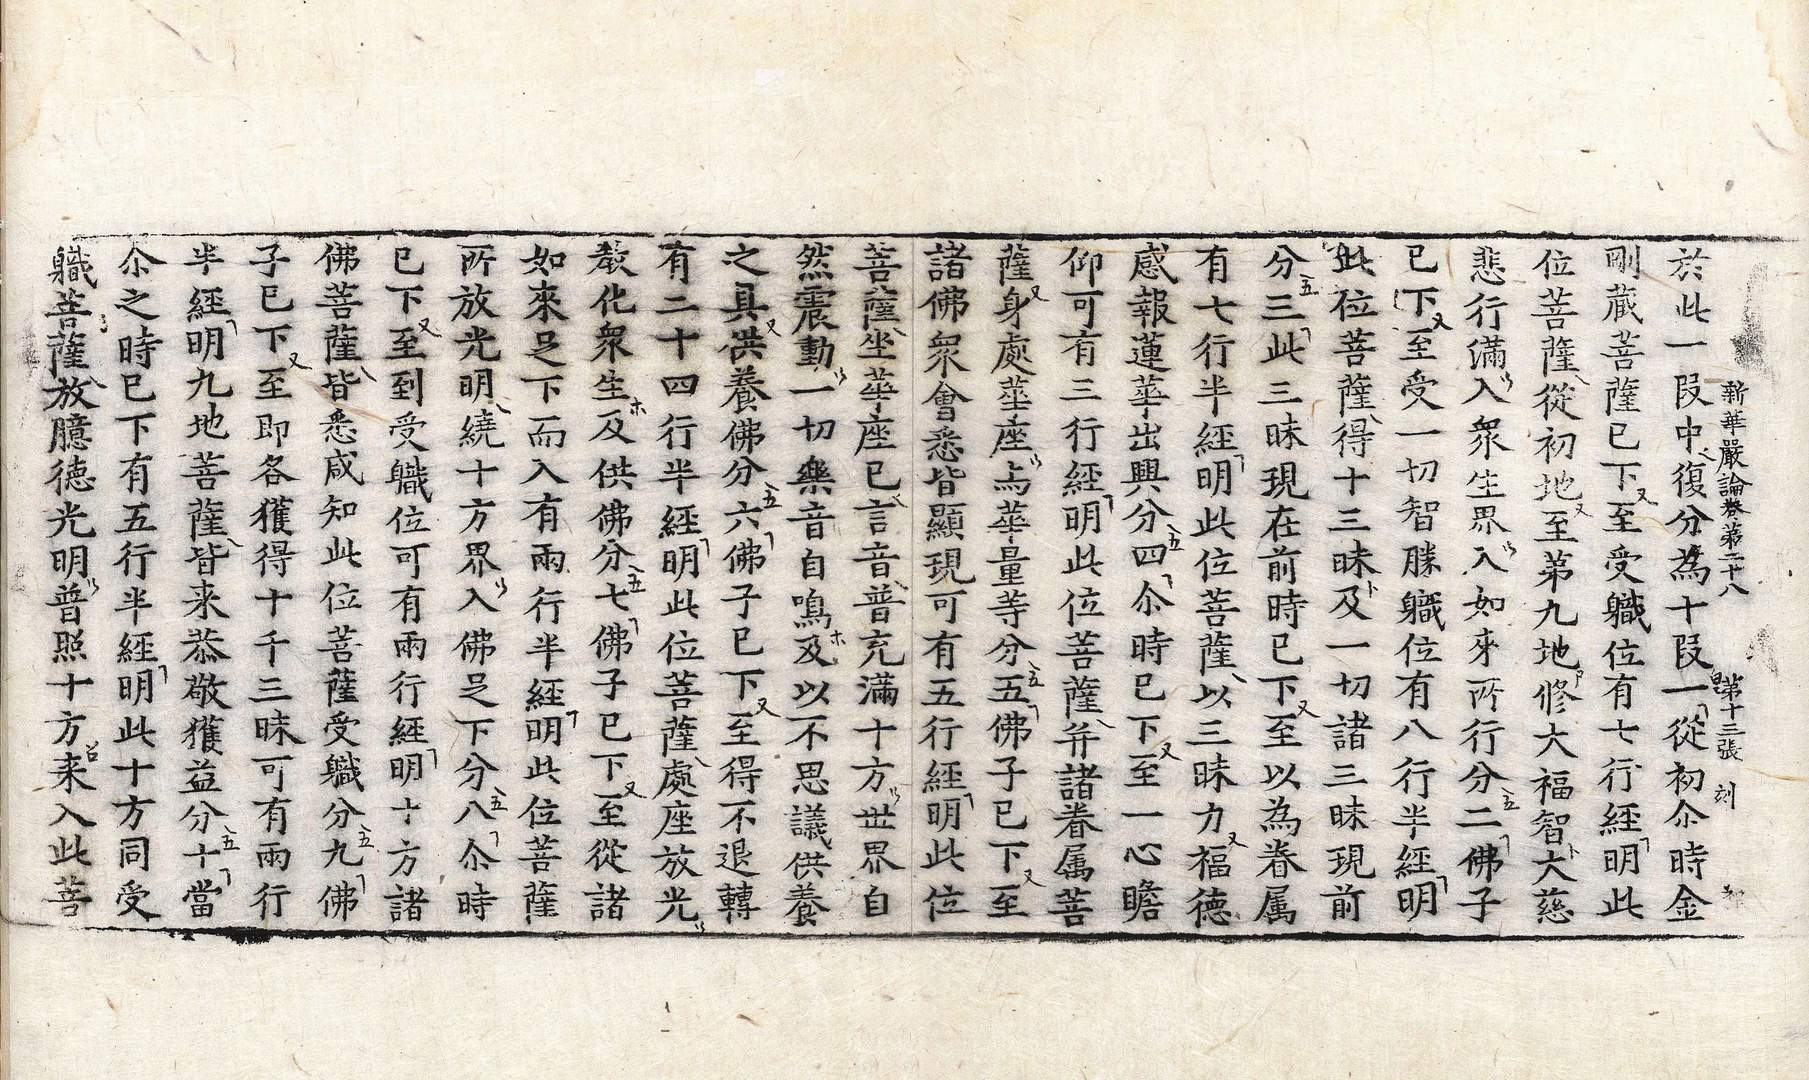 新華嚴論卷第二十八 第十三張 刻
於此一段中復分為十段一從初尒時金
剛藏菩薩已下至受職位有七行經明此
位菩薩從初地至第九地修大福智大慈
悲行滿入衆生界入如來所行分二佛子
已下至受一切智勝職位有八行半經明
此位菩薩得十三昧及一切諸三昧現前
分三此三昧現在前時已下至以為眷属
有七行半經明此位菩薩以三昧力福德
感報蓮華出興分四尒時已下至一心瞻
仰可有三行經明此位菩薩并諸眷属菩
薩身處華座与華量等分五佛子已下至
諸佛衆會悉皆顯現可有五行經明此位
菩薩坐華座已言音普充滿十方世界自
然震動一切樂音自鳴及以不思議供養
之具供養佛分六佛子已下至得不退轉
有二十四行半經明此位菩薩處座放光
教化衆生及供佛分七佛子已下至從諸
如來足下而入有兩行半經明此位菩薩
所放光明繞十方界入佛足下分八尒時
已下至到受職位可有兩行經明十方諸
佛菩薩皆悉咸知此位菩薩受職分九佛
子已下至即各獲得十千三昧可有兩行
半經明九地菩薩皆来恭敬獲益分十當
尒之時已下有五行半經明此十方同受
職菩薩放臆德光明普照十方来入此菩